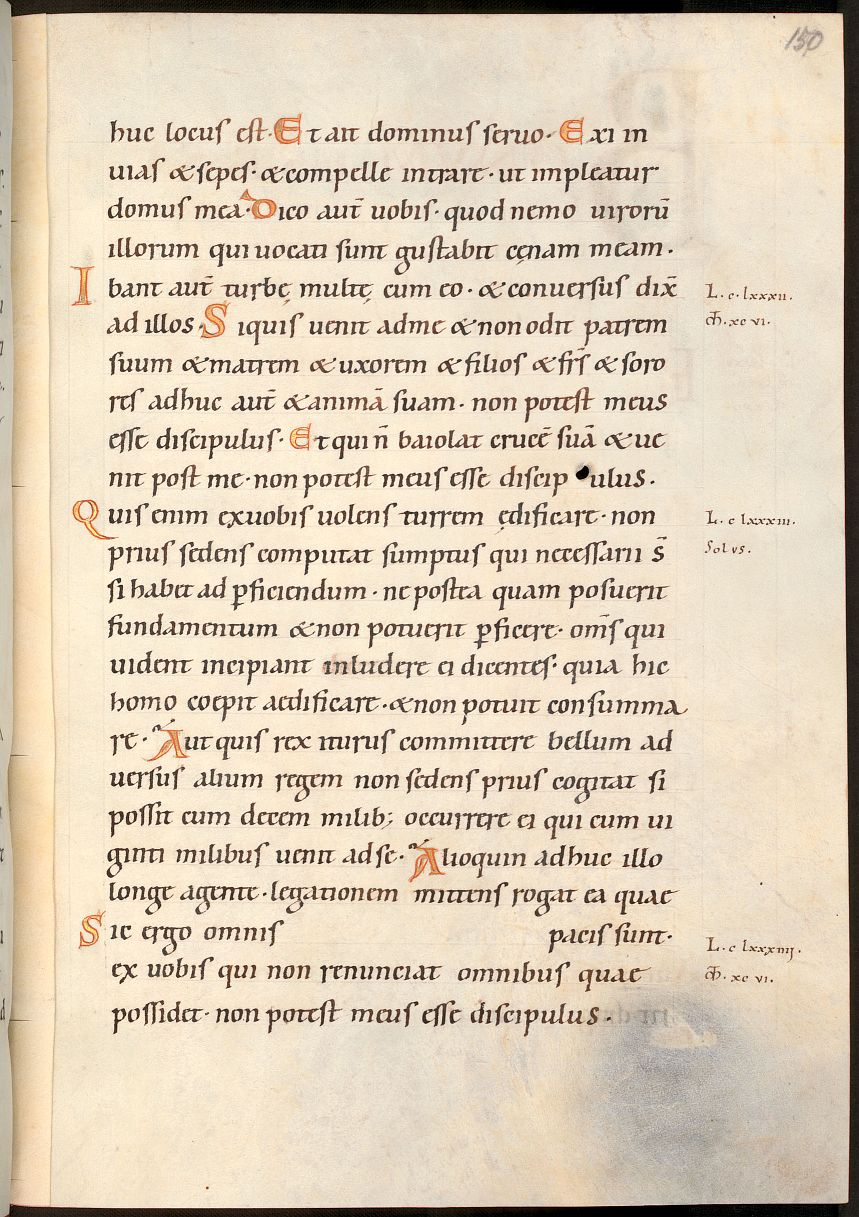 150
huc locus est· Et ait dominus seruo· Exi in
uias & sepes· & compelle intrare· ut impleatur
domus mea· Dico aut̄ uobis· quod nemo uirorū
illorum qui uocati sunt gustabit cęnam meam·
Ibant aut̄ turbę multę cum eo· & conuersus dix̄
ad illos· Si quis uenit ad me & non odit patrem
suum & matrem & uxorem & filios & fr̄s & soro
res adhuc aut̄ & animā suam· non potest meus
esse discipulus· Et qui n̄ baiolat crucē suā & ue
nit post me· non potest meus esse discipulus·
Quis enim ex uobis uolens turrem ędificare· non
prius sedens computat sumptus qui necessarii s̄
si habet ad ꝑficiendum· ne postea quam posuerit
fundamentum & non potuerit ꝑficere· om̄s qui
uident incipiant inludere ei dicentes· quia hic
homo coepit aedificare· & non potuit consumma
re· Aut quis rex iturus committere bellum ad
uersus alium regem non sedens prius cogitat si
possit cum decem milib; occurrere ei qui cum ui
ginti milibus uenit ad se· Alioquin adhuc illo
longe agente· legationem mittens rogat ea quae
Sic ergo omnis pacis sunt·
ex uobis qui non renunciat omnibus quae
possidet· non potest meus esse discipulus·
L. c. lxxxii.
M̄. xc vi.
L. c lxxxiii.
Solus.
L. c lxxxiiij.
M̄. xc vi.